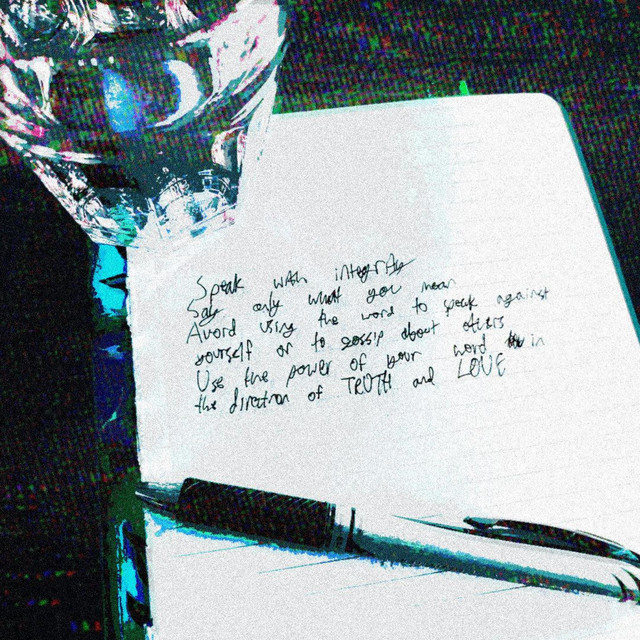 Speak with integrity
Say only what you mean
Avoid using the word to speak against
yourself or to gossip about others
Use the power of your word in
the direction of TRUTH and LOVE